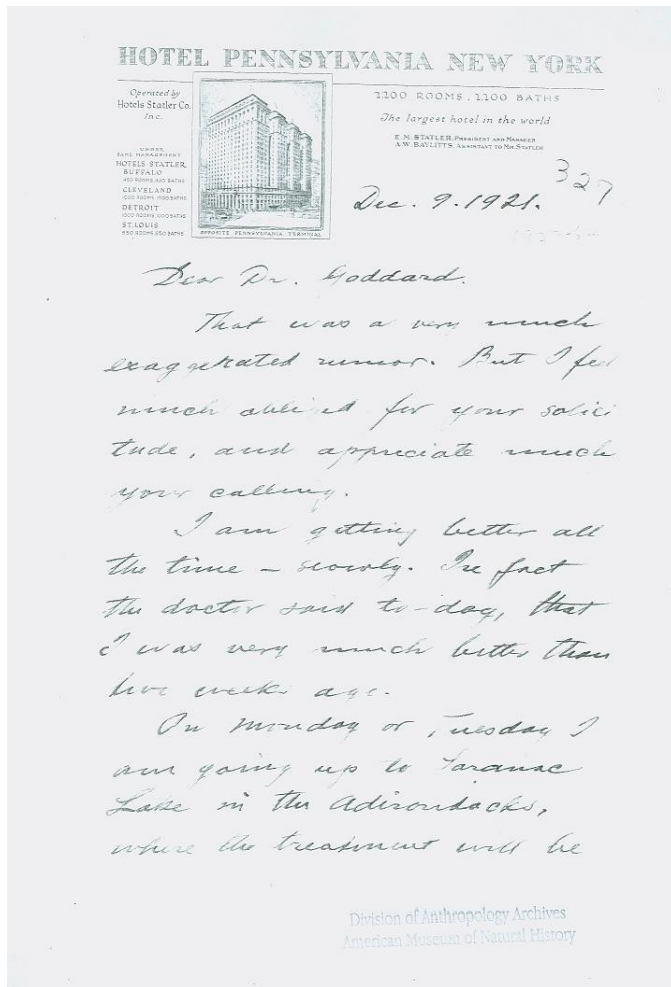 HOTEL PENNSYLVANIA NEW YORK
Operated by
Hotels Statler Co.
Inc.
UNDER
SAME MANAGEMENT
HOTELS STATLER
BUFFALO
450 ROOMS, 450 BATHS
CLEVELAND
1000 ROOMS, 1000 BATHS
DETROIT
1000 ROOMS, 1000 BATHS
ST. LOUIS
650 ROOMS, 650 BATHS
OPPOSITE PENNSYLVANIA TERMINAL
2200 ROOMS, 2200 BATHS
The largest hotel in the world
E.M. STATLER, PRESIDENT AND MANAGER
A.W. BAYLITTS, ASSISTANT TO MR. STATLER
327
Dec. 9. 1921.
Dear Dr. Goddard.
That was a very much
exaggerated rumor. But I feel
much obliged for your solici
tude, and appreciate much
your calling.
I am getting better all
the time – slowly. In fact
the doctor said to-day, that
I was very much better than
two weeks ago.
On Monday or Tuesday I
am going up to Saranac
Lake in the Adirondacks,
where the treatment will be
Division of Anthropology Archives
American Museum of Natural History